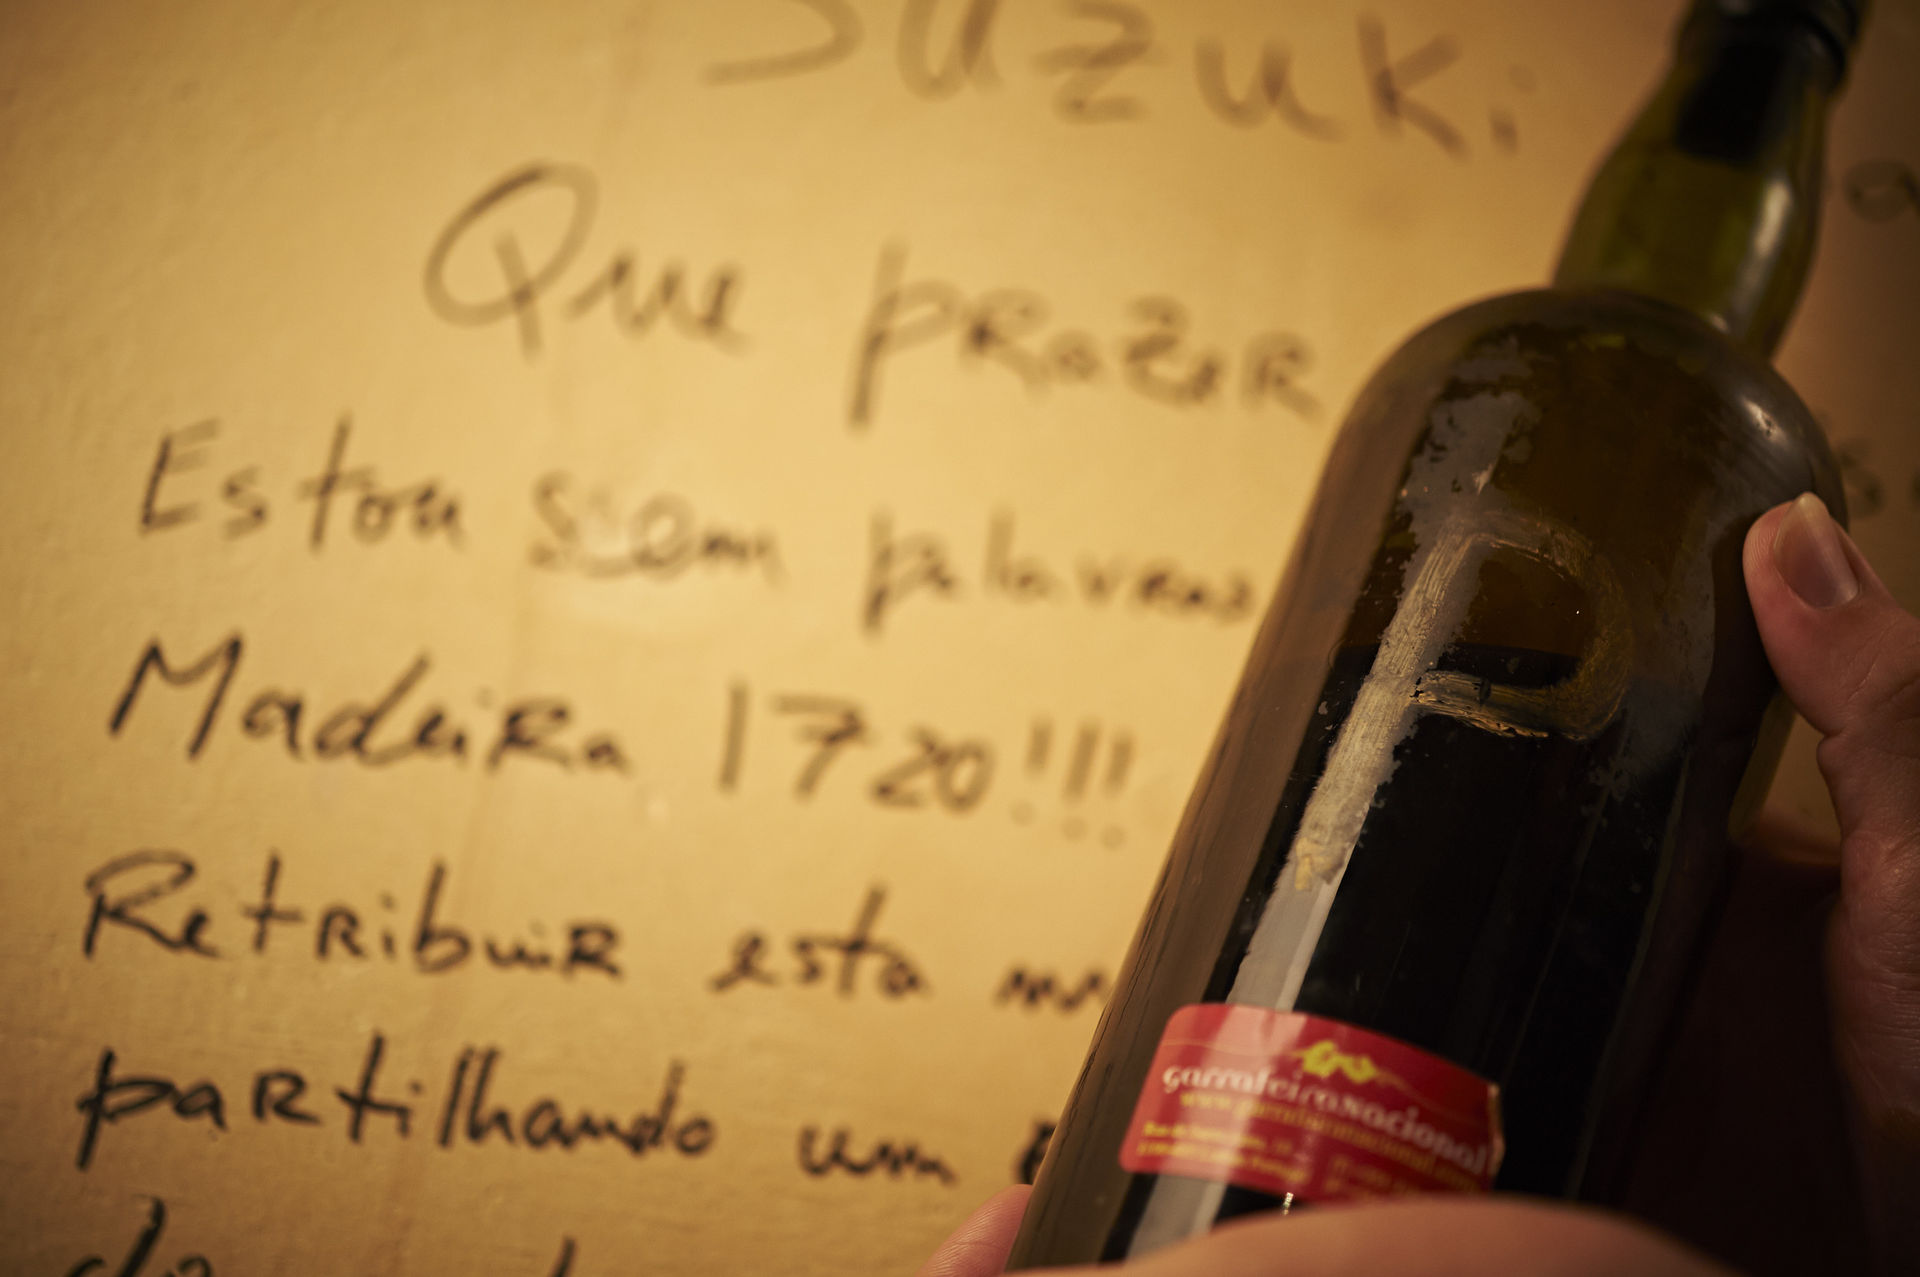 Suzuki
Que prazer
Estou sem palavras
Madeira 1720!!!
Retribuir esta
partilhando um
P
garrafeiranacional